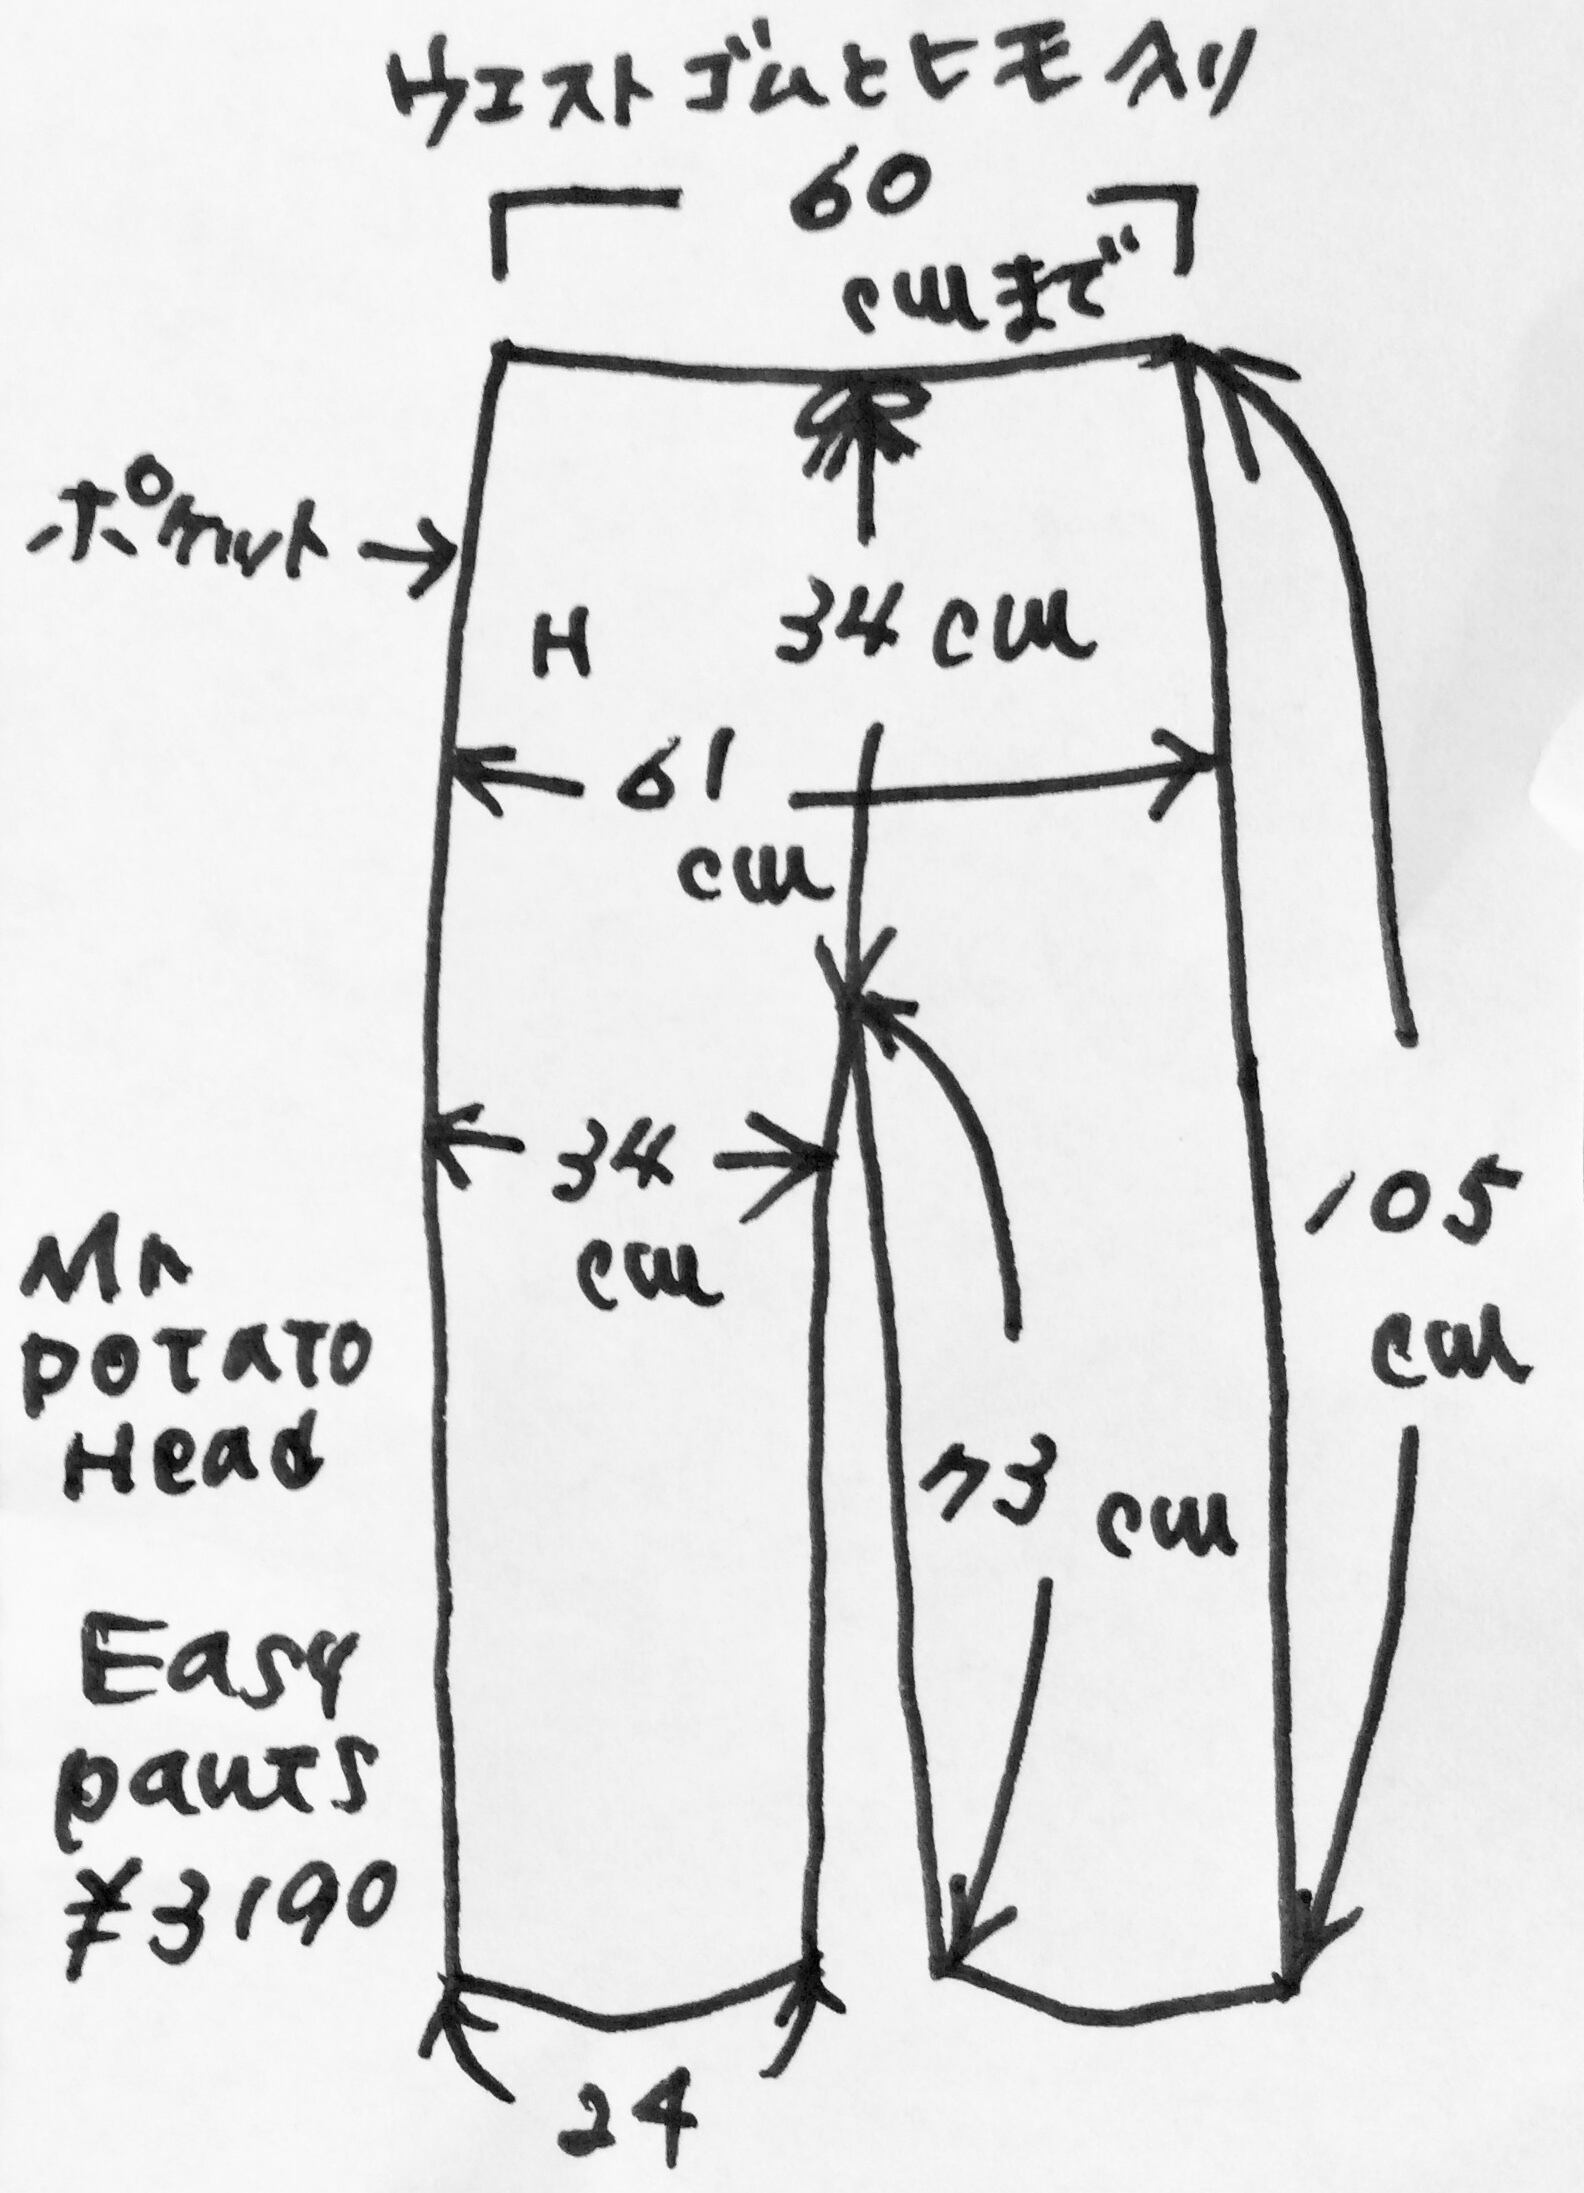 ウエストゴムとヒモ入り
60
cmまで
ポケット
H
34cm
61
cm
34
cm
105
cm
Mr
POTATO
Head
73
cm
Easy
pants
¥3190
24